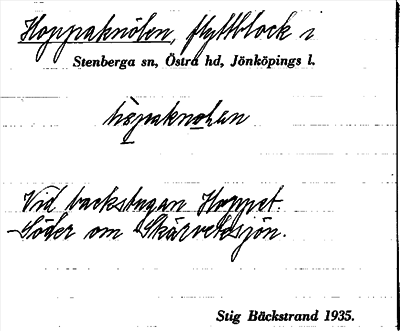 Hoppaknölen, flyttblock i
Stenberga sn, Östra hd, Jönköpings l.
Vid backstugan Hoppet.
Söder om Skärvetesjön.
Stig Bäckstrand 1935.